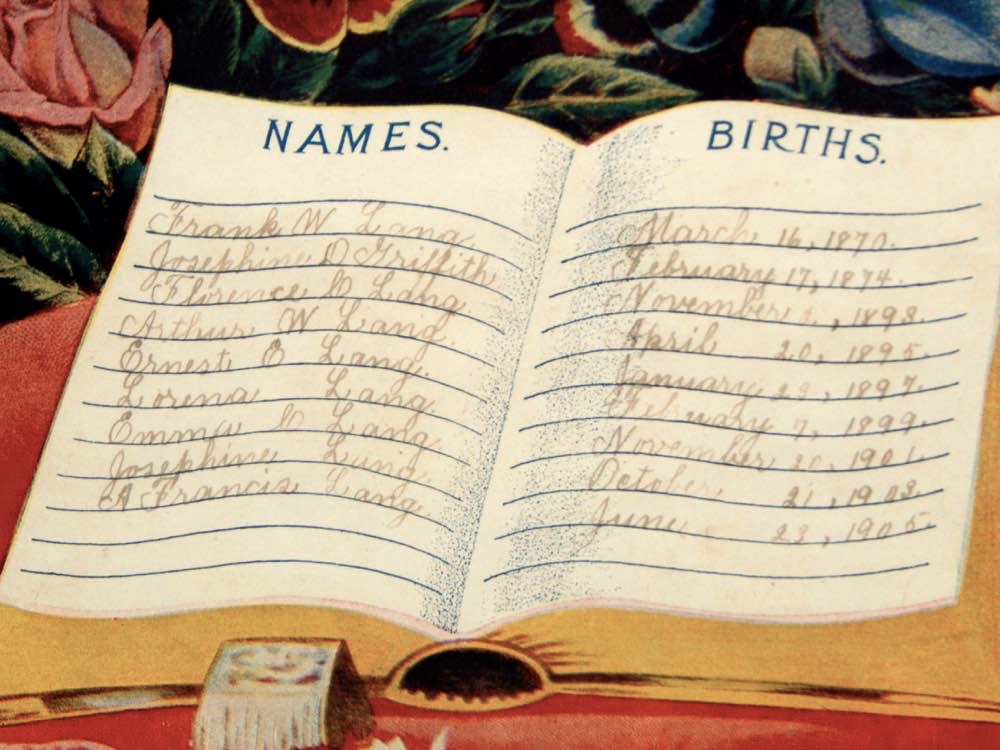 NAMES.
Frank W Lang
Josephine D Griffith
Florence Lang
Arthur W Lang
Ernest E Lang.
Lorena Lang
Emma Lang
Josephine Lang.
A Francis Lang
BIRTHS.
March 16, 1870.
February 17, 1874.
November 1893.
April 20, 1895.
January 1897.
February 7, 1899.
November 1901.
October 21, 1903.
June 23, 1905.